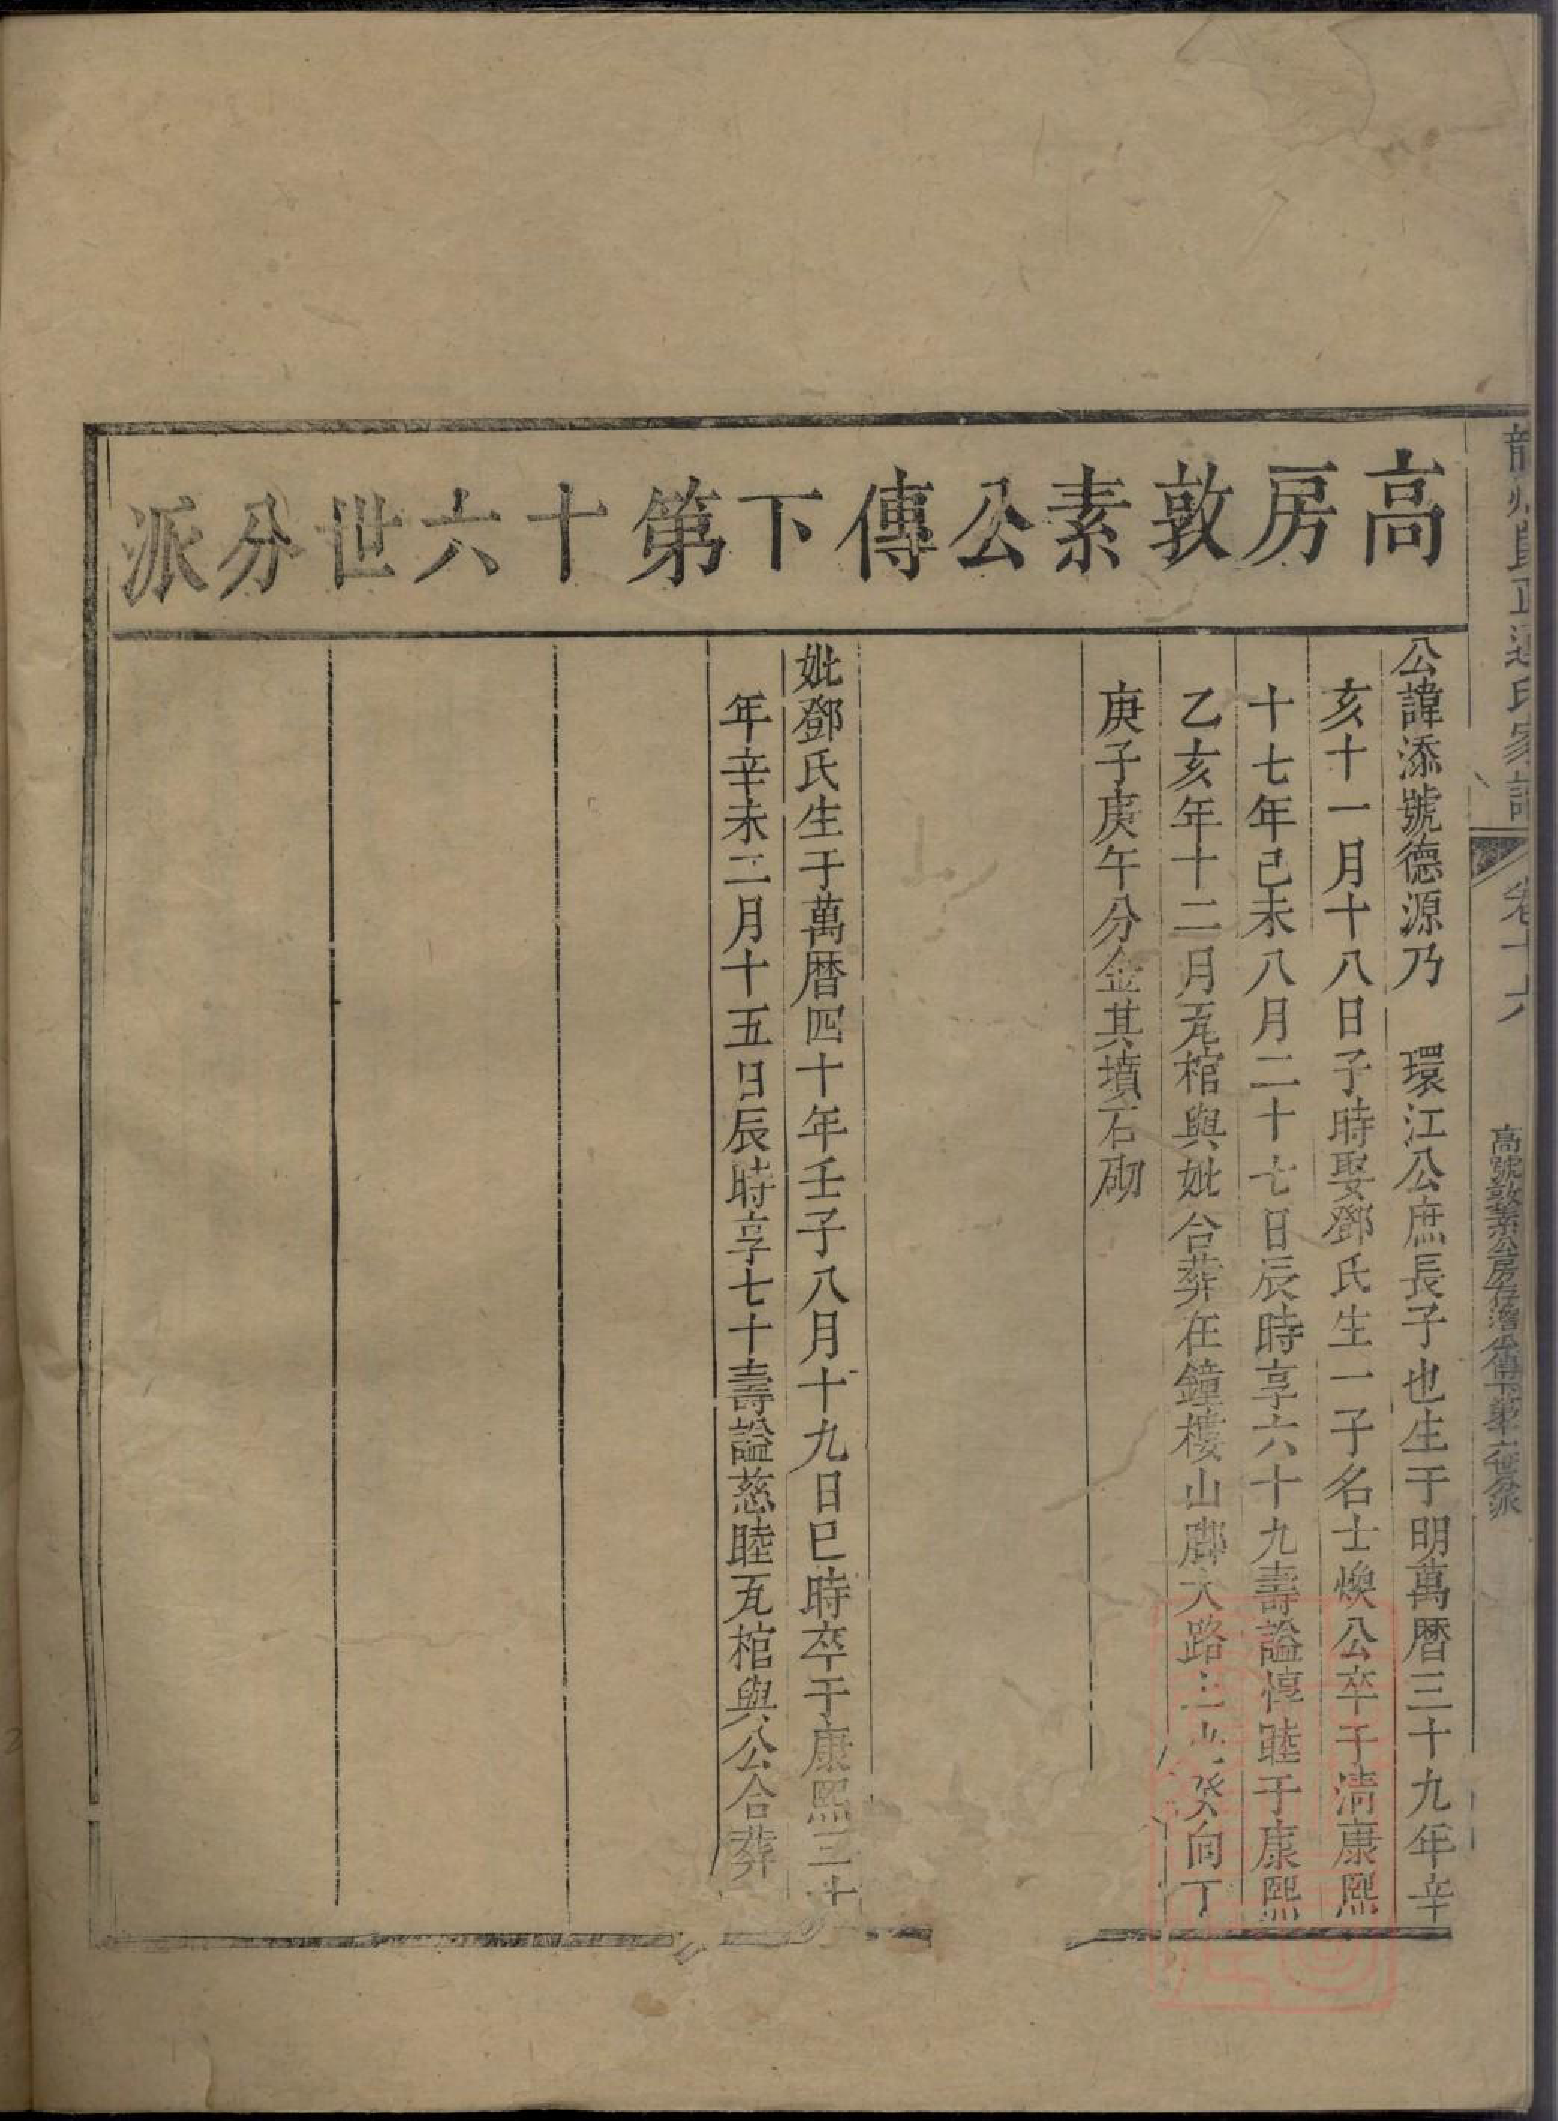 氏家譜
卷十六
高號敦素公房存潛公傳下第十六世分派
高房敦素公傳下第十六世分派
公諱添號德源乃　環江公庶長子也生于明萬曆三十九年辛
亥十一月十八日子時娶鄧氏生一子名士煥公卒于清康熙
十七年己未八月二十七日辰時享六十九壽謚惇睦于康熙
乙亥年十二月瓦棺與妣合葬在鐘樓山脚大路癸向丁
庚子庚午分金其墳石砌
妣鄧氏生于萬曆四十年壬子八月十九日巳時卒于康熙三十
年辛未二月十五日辰時享七十壽謚慈睦瓦棺與公合葬